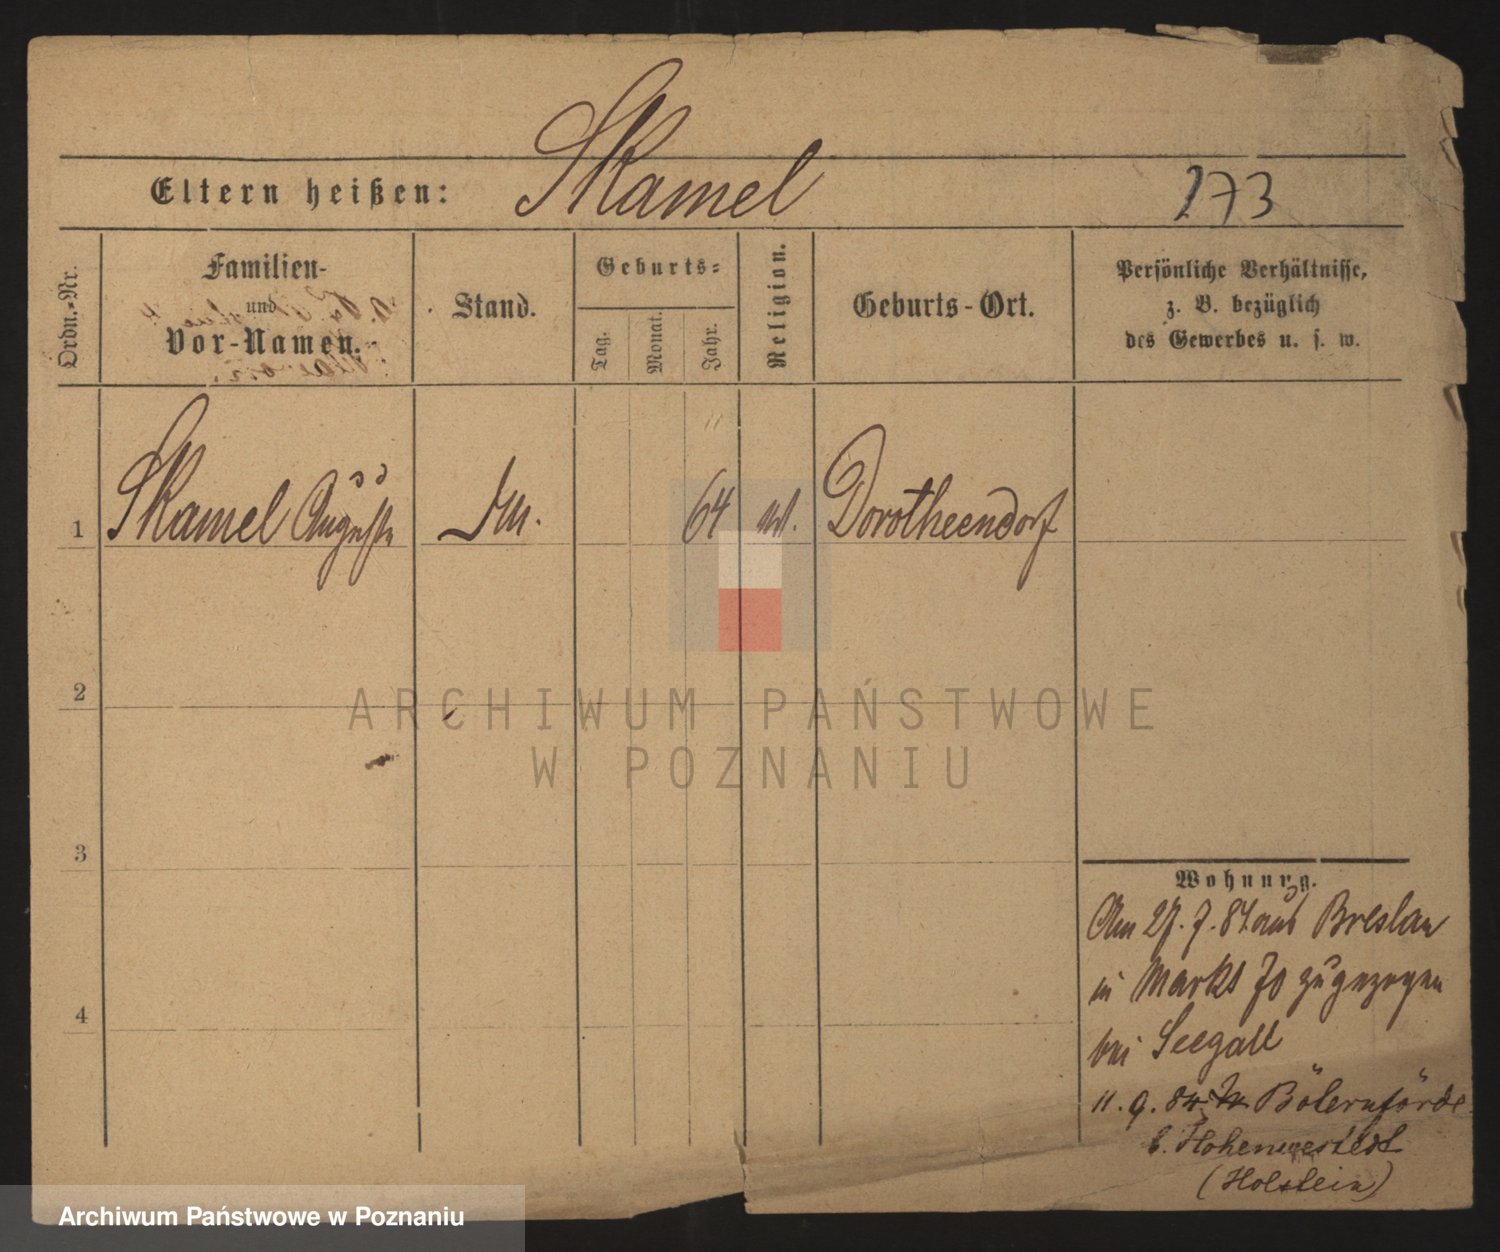 Skamel
Eltern heißen:
273
Ordn.-Nr.
Familien-
und
Vor-Namen.
Stand.
Geburts-
Tag.
Monat.
Jahr.
Religion.
Geburts-Ort.
Persönliche Verhältnisse,
z. B. bezüglich
des Gewerbes u. s. w.
1 Skamel Auguste 64 Dorotheendorf
2
3
4
ARCHIWUM PAŃSTWOWE
W POZNANIU
Wohnung.
Am 27. 7. 84 aus Breslau
in Markt 70 zugezogen
bei Seegall
11. 9. 84
b. Hohenwestedt
(Holstein)
Archiwum Państwowe w Poznaniu